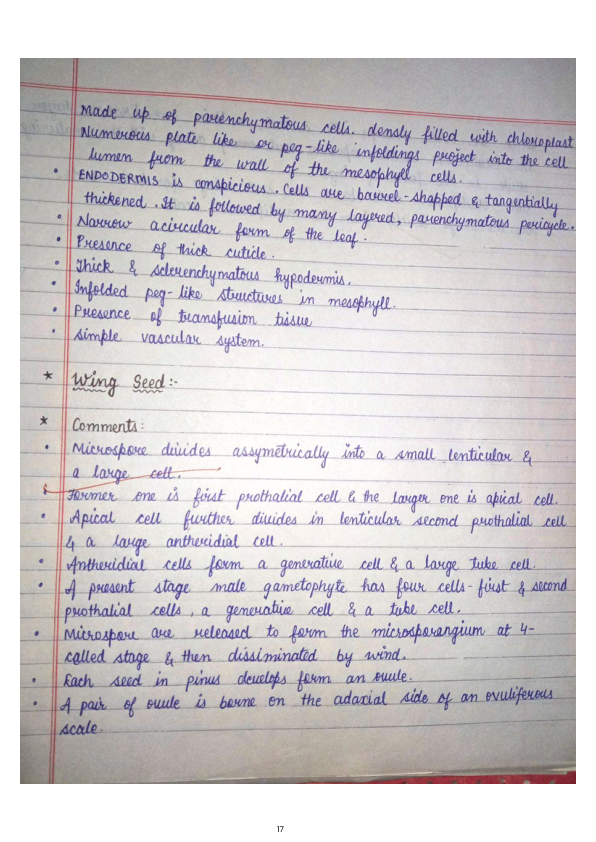 Made up of parenchymatous cells. densly filled with chloroplast
Numerous plate like or peg-like infoldings project into the cell
lumen from the wall of the mesophyll cells.
• ENDODERMIS is conspicious. Cells are barrel-shapped & tangentially
thickened. It is followed by many layered, parenchymatous pericycle.
• Narrow acircular form of the leaf.
• Presence of thick cuticle.
• Thick & sclerenchymatous hypodermis.
• Infolded peg-like structures in mesophyll.
• Presence of transfusion tissue
• simple vascular system.
* Wing Seed:-
* Comments:
• Microspore divides assymetrically into a small lenticular &
a large cell.
• Former one is first prothalial cell & the larger one is apical cell.
• Apical cell further divides in lenticular second prothalial cell
& a large antheridial cell.
• Antheridial cells form a generative cell & a large tube cell.
• A present stage male gametophyte has four cells- first & second
prothalial cells, a generative cell & a tube cell.
• Microspore are released to form the microsporangium at 4-
called stage & then dissiminated by wind.
• Each seed in pinus develops form an ovule.
• A pair of ovule is borne on the adaxial side of an ovuliferous
scale.
17